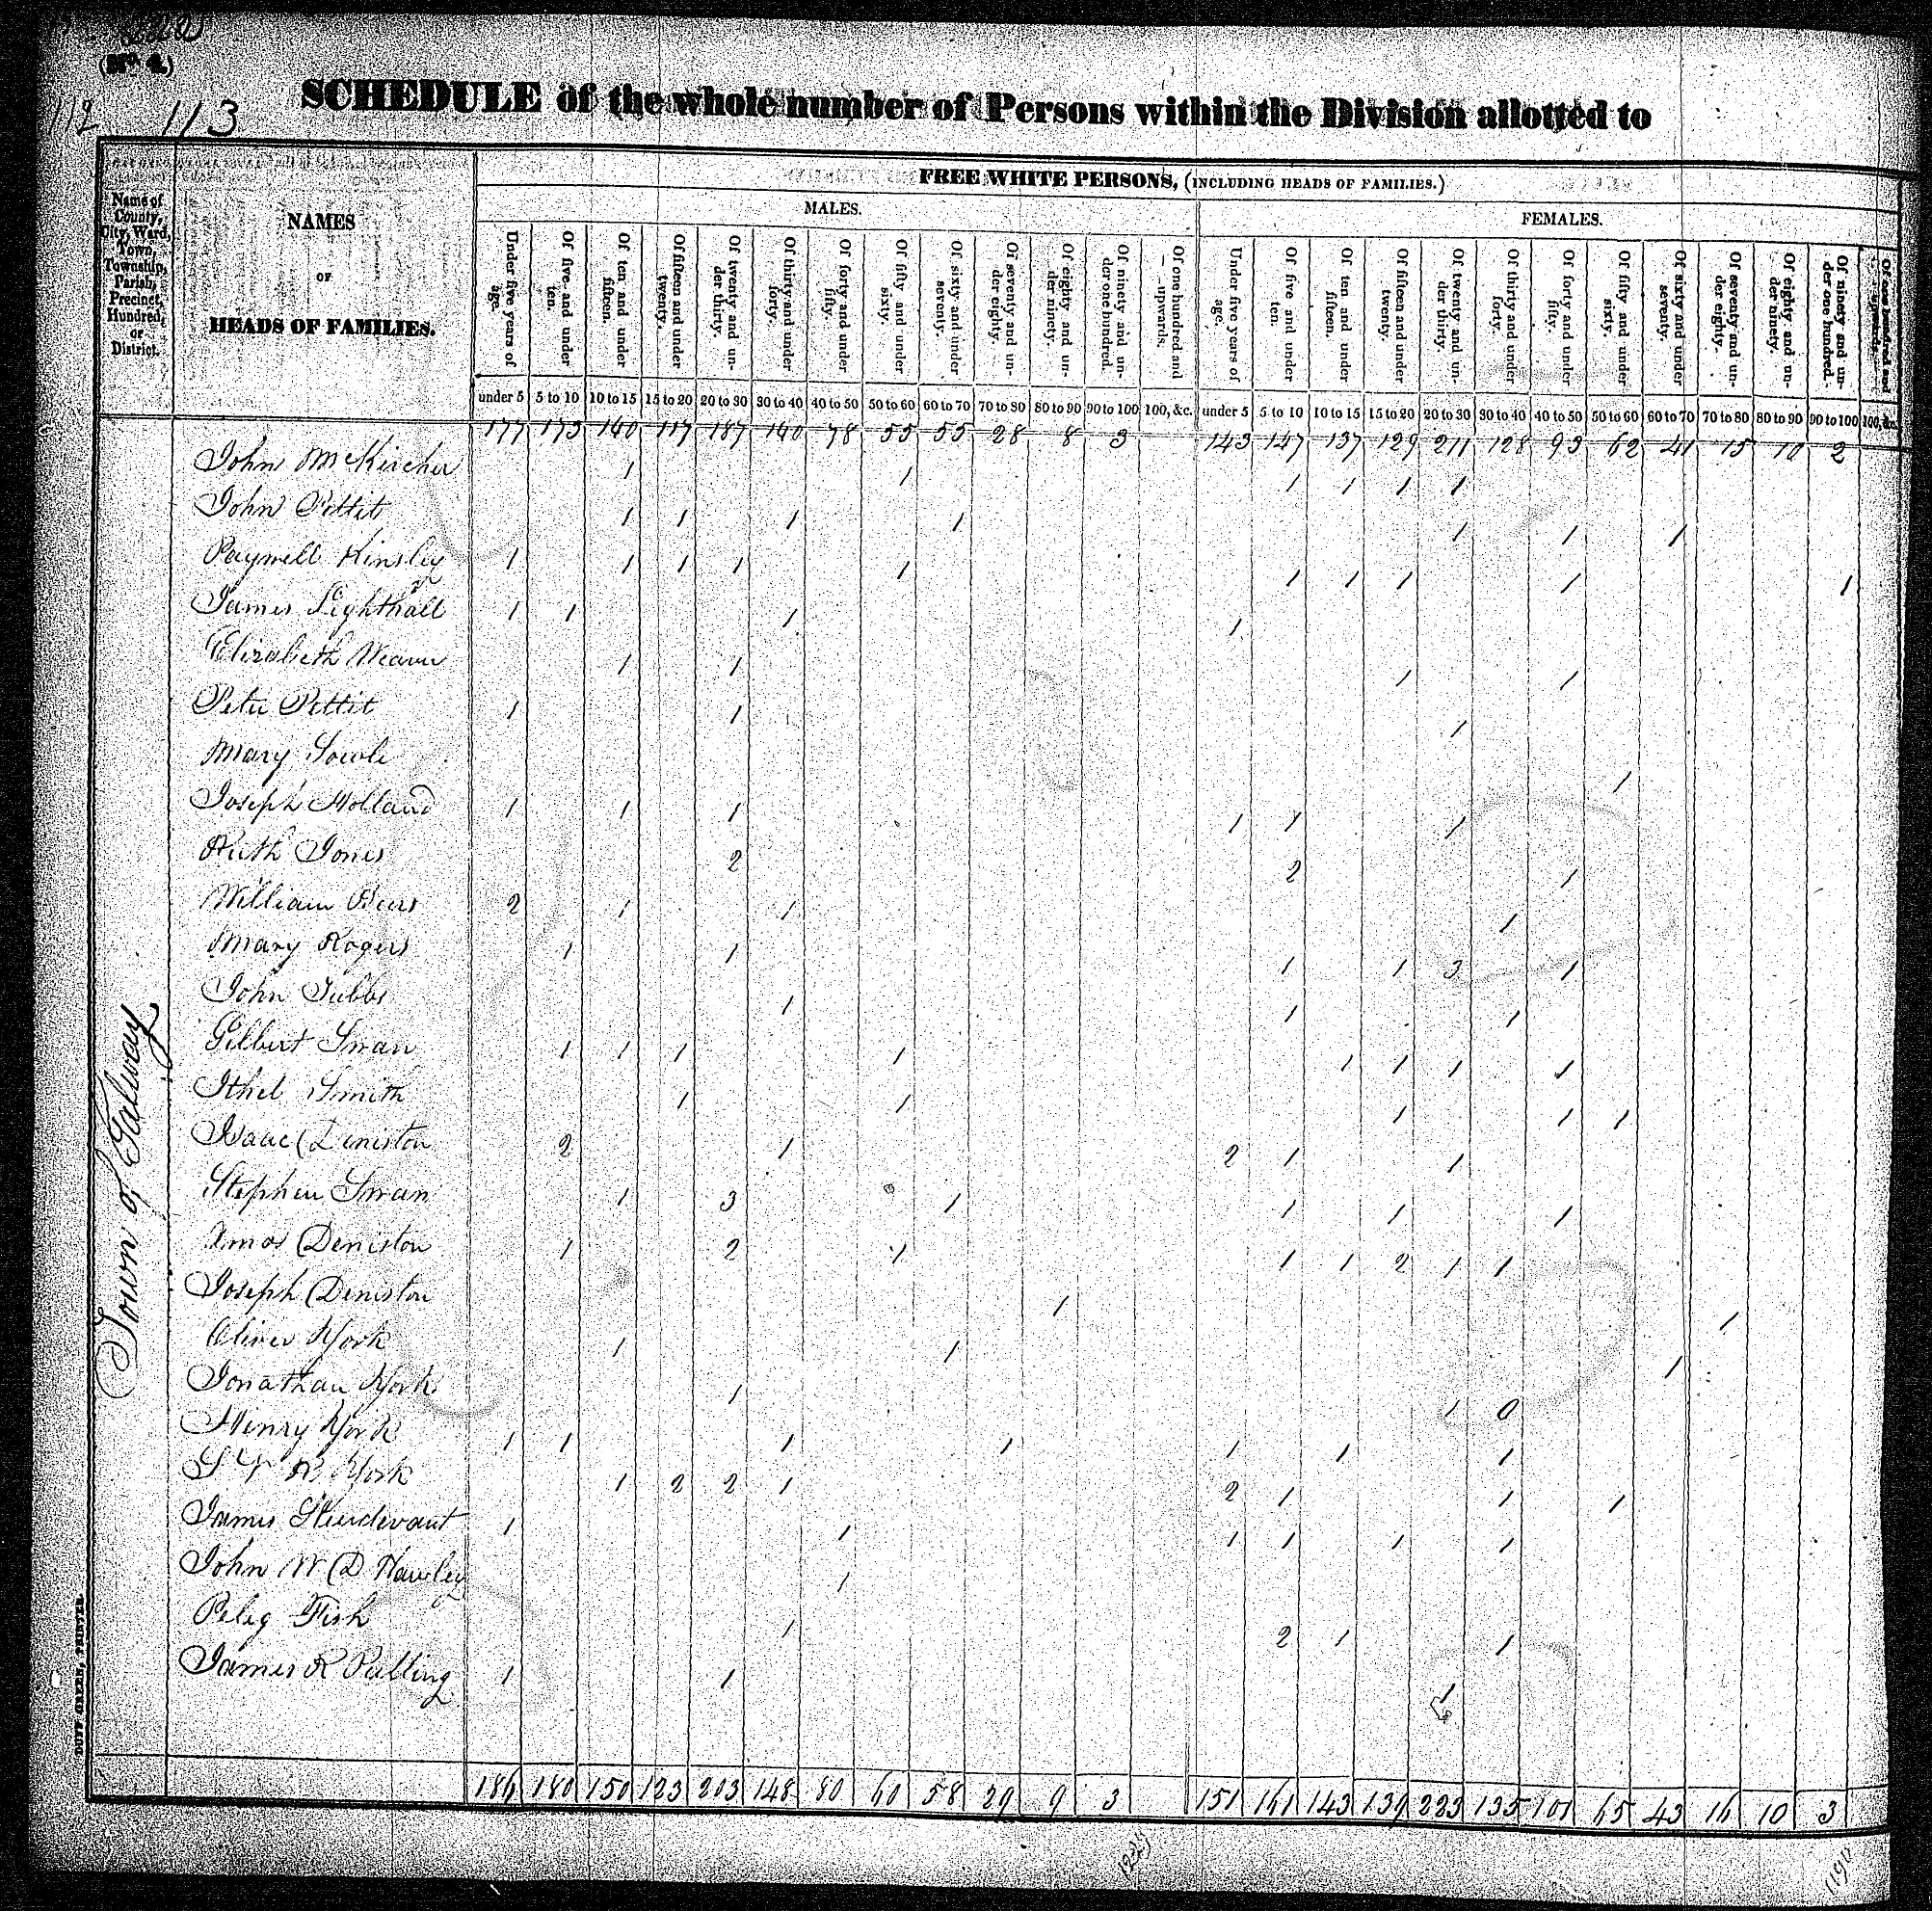 (No 4.)
112 113
SCHEDULE of the whole number of Persons within the Division allotted to
Name of County, City, Ward, Town, Township, Parish, Precinct, Hundred, or District.
NAMES
OF
HEADS OF FAMILIES.
FREE WHITE PERSONS, (INCLUDING HEADS OF FAMILIES.)
MALES.
FEMALES.
Under five years of age. Of five and under ten. Of ten and under fifteen. Of fifteen and under twenty. Of twenty and under thirty. Of thirty and under forty. Of forty and under fifty. Of fifty and under sixty. Of sixty and under seventy. Of seventy and under eighty. Of eighty and under ninety. Of ninety and under one hundred. Of one hundred and upwards. Under five years of age. Of five and under ten. Of ten and under fifteen. Of fifteen and under twenty. Of twenty and under thirty. Of thirty and under forty. Of forty and under fifty. Of fifty and under sixty. Of sixty and under seventy. Of seventy and under eighty. Of eighty and under ninety. Of ninety and under one hundred. Of one hundred and upwards.
under 5 5 to 10 10 to 15 15 to 20 20 to 30 30 to 40 40 to 50 50 to 60 60 to 70 70 to 80 80 to 90 90 to 100 100, &c. under 5 5 to 10 10 to 15 15 to 20 20 to 30 30 to 40 40 to 50 50 to 60 60 to 70 70 to 80 80 to 90 90 to 100 100, &c.
177 173 140 117 187 140 78 55 55 28 8 3 143 147 137 129 211 128 93 62 41 15 10 2
John McKircher 1 1 1 1 1 1
John Pettit 1 1 1 1 1 1 1
Paywell Kinsley 1 1 1 1 1 1 1 1 1 1
James Lighthall 1 1 1 1
Elizabeth Weaver 1 1 1 1
Peter Pettit 1 1 1
Mary Sowle 1
Joseph Holland 1 1 1 1 1 1
Ruth Jones 2 2 1
William Beers 2 1 1 1
Mary Rogers 1 1 1 1 3 1
John Tubbs 1 1 1
Gilbert Swan 1 1 1 1 1 1 1 1
Ithel Smith 1 1 1 1 1
Isaac Deniston 2 1 2 1 1
Stephen Swan 1 3 1 1 1 1
Amos Deniston 1 2 1 1 1 2 1 1
Joseph Deniston 1 1
Oliver York 1 1 1
Jonathan York 1 1 0
Henry York 1 1 1 1 1 1 1
York 1 2 2 1 2 1 1 1
James Sturdevant 1 1 1 1 1 1
John W D Hawley 1
Peleg Fish 1 2 1 1
James R Pulling 1 1 1
Town of Galway
186 180 150 123 203 148 80 60 58 29 9 3 151 161 143 139 223 135 101 65 43 16 10 3
DUFF GREEN, PRINTER.